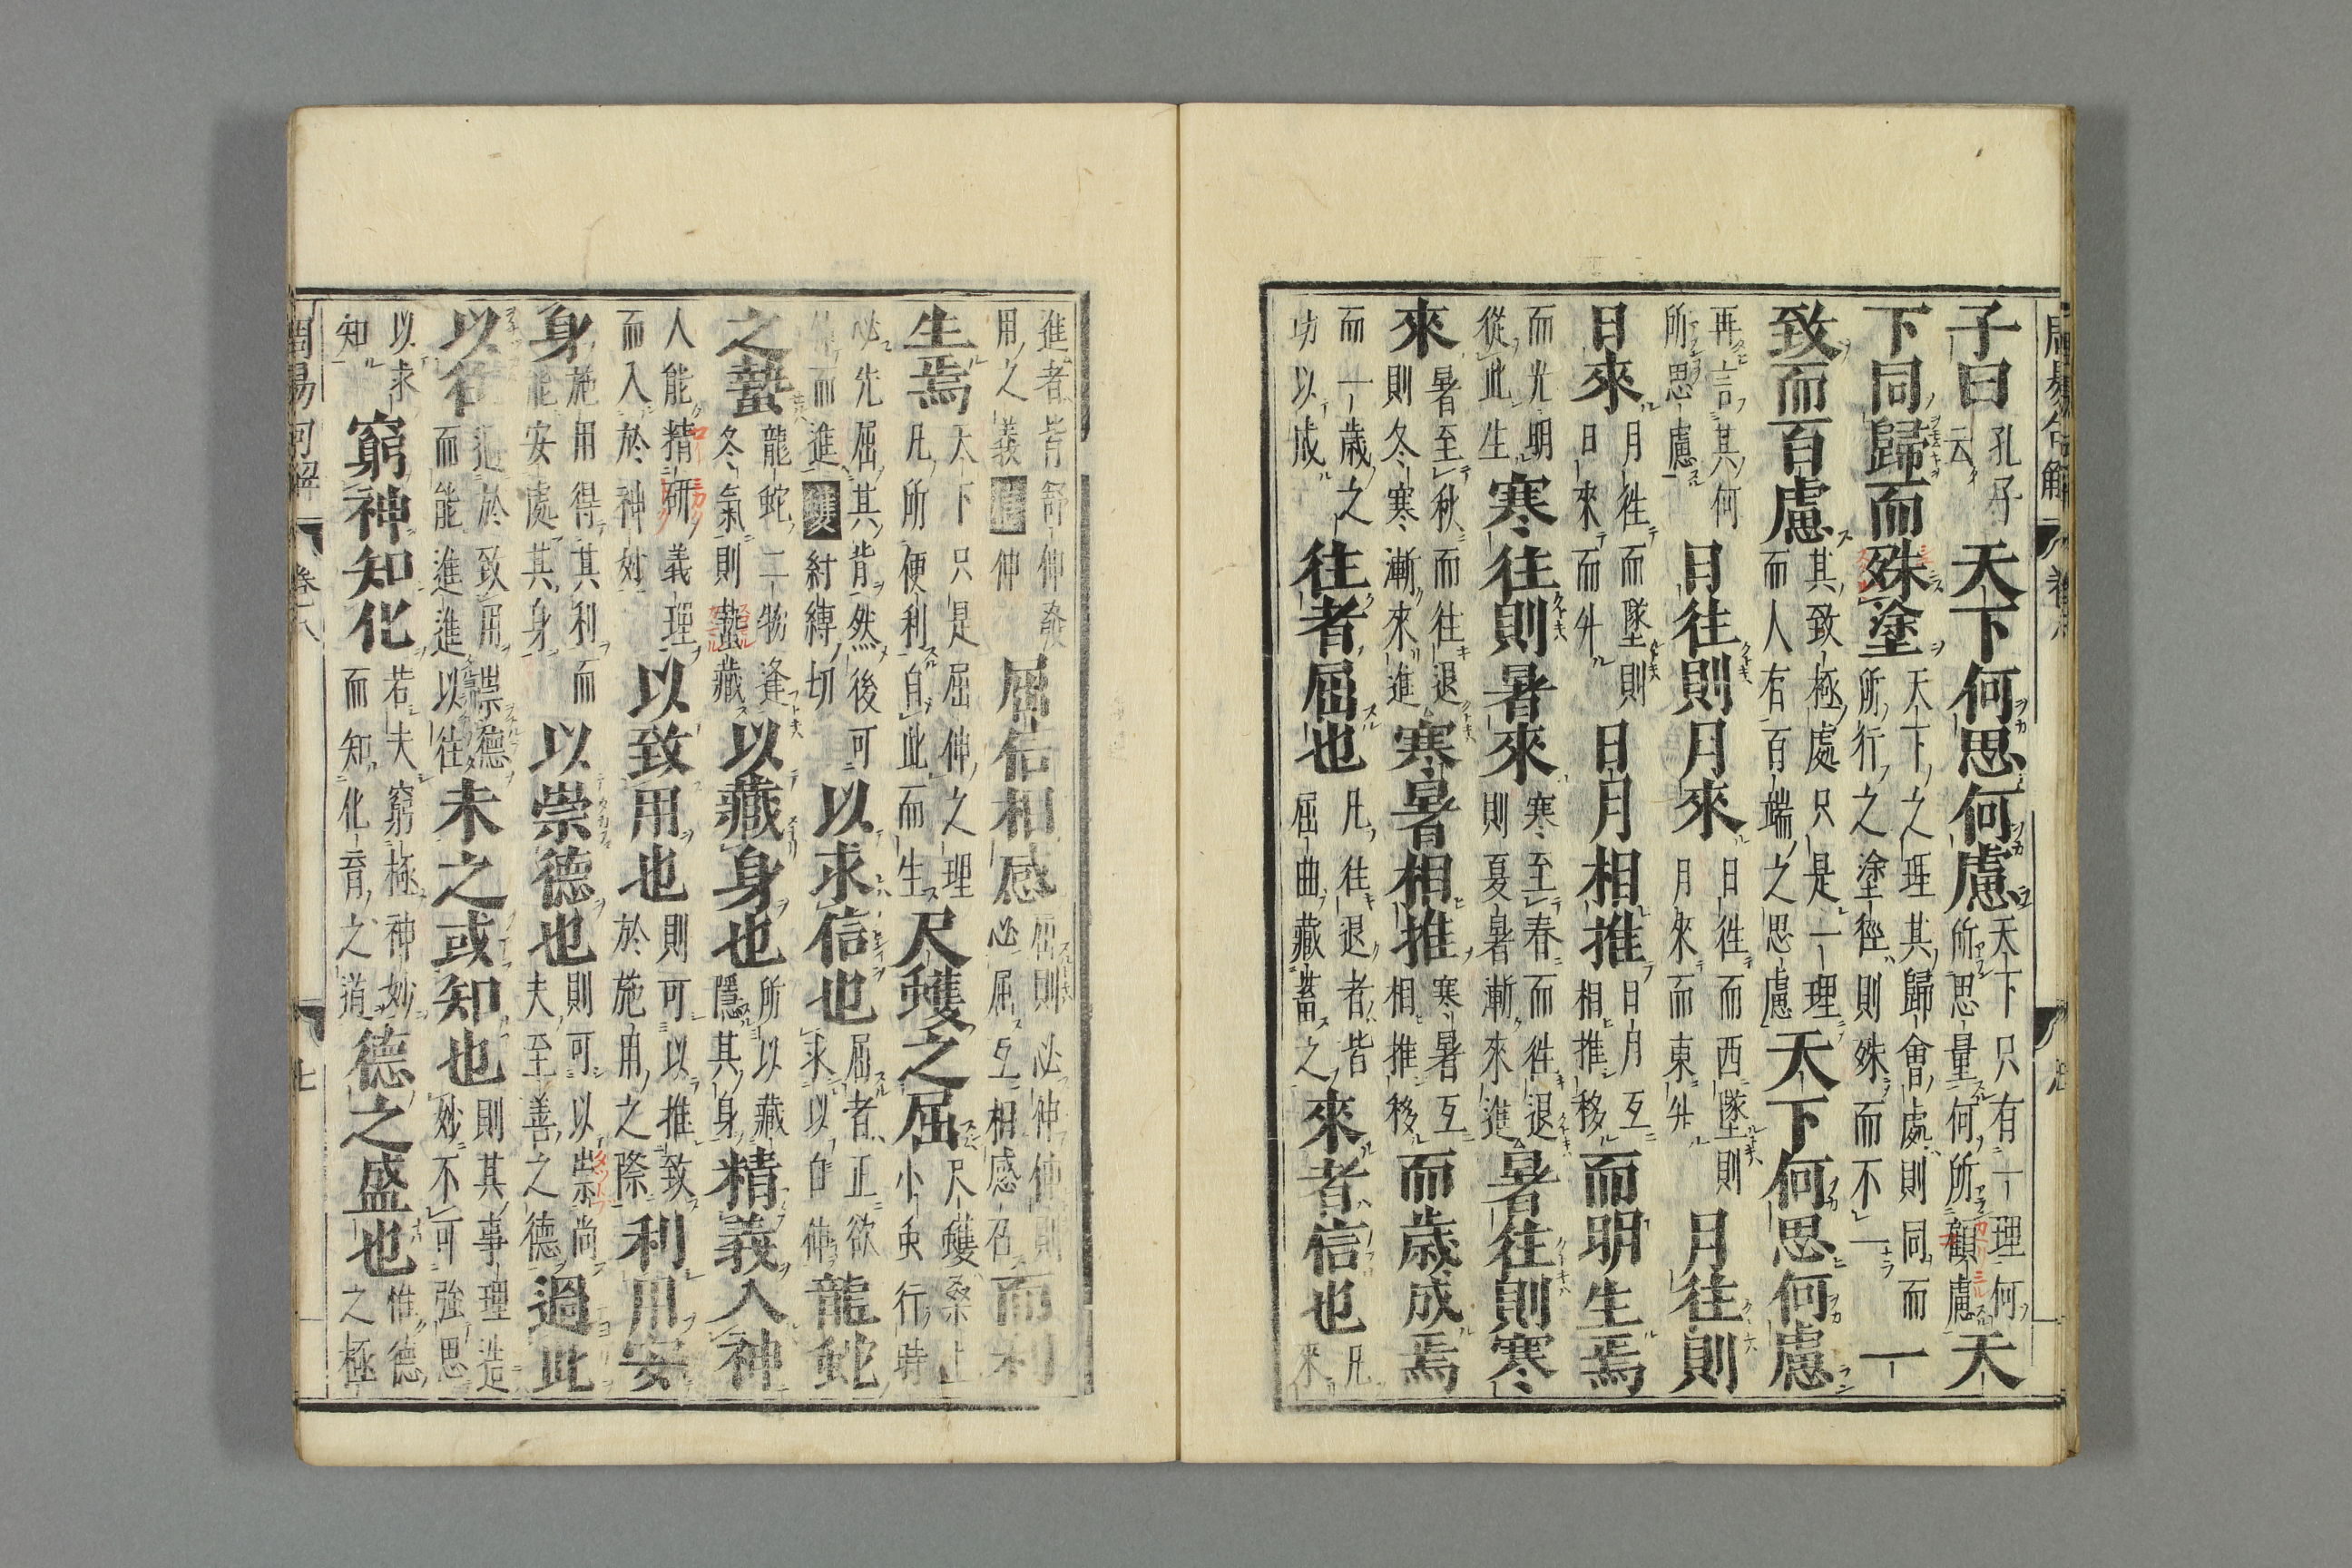 子曰孔子云天下何思何慮天下只有一理何所思量何所顧慮天
下同歸而殊塗天下之理其歸會處則同而所行之塗徑則殊而不一一
致而百慮其致極處只是一理而人有百端之思慮天下何思何慮
再言其何所思慮日往則月來日往而西墜則月來而東升月往則
日來月往而墜則日來而升日月相推日月互相推移而明生焉
而光明從此生寒往則暑來寒至春而往退則夏暑漸來進暑往則寒
來暑至秋而往退則冬寒漸來進寒暑相推寒暑互相推移而歳成焉
而一歳之功以成往者屈也凡往退者皆屈曲藏蓄之來者信也凡來
進者皆舒伸發用之義伸屈信相感屈則必伸伸則必屈互相感召而利
生焉天下只是屈伸之理凡所便利自此而生尺蠖之屈尺蠖桑上小虫行時
必先屈其背然後可伸而進蠖紂縛切以求信也屈者正欲求以自伸龍蛇
之蟄龍蛇二物逢冬氣則蟄藏以藏身也所以藏隱其身精義入神
人能精研義理而入於神妙以致用也則可以推致於施用之際利用安
身施用得其利而能安處其身以崇德也則可以崇尚夫至善之德過此
以往過於致用崇德而能進進以往未之或知也則其事理造妙不可強思
以求知窮神知化若夫窮極神妙而知化育之道德之盛也惟德之極
周易句解 卷八 七